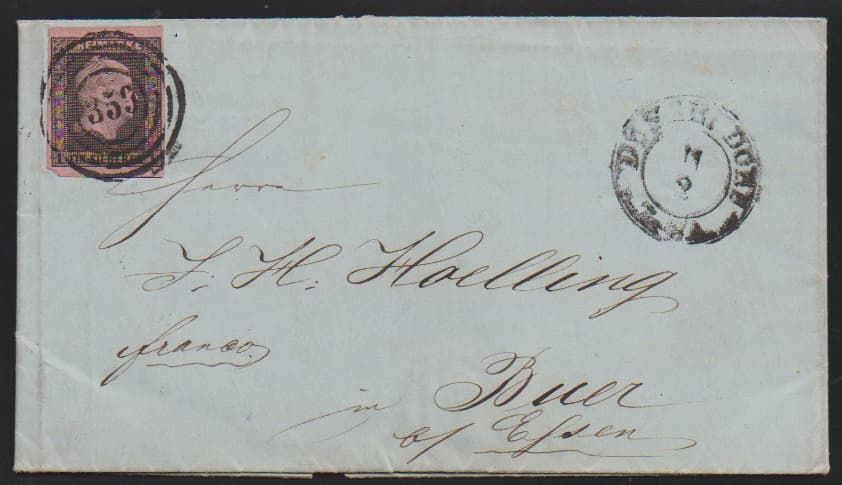 FREIMARKE
353
1 EIN SILBERGR. 1
DÜSSELDORF
Herrn
J. H. Hoelling
franco
in Buer
b/ Essen